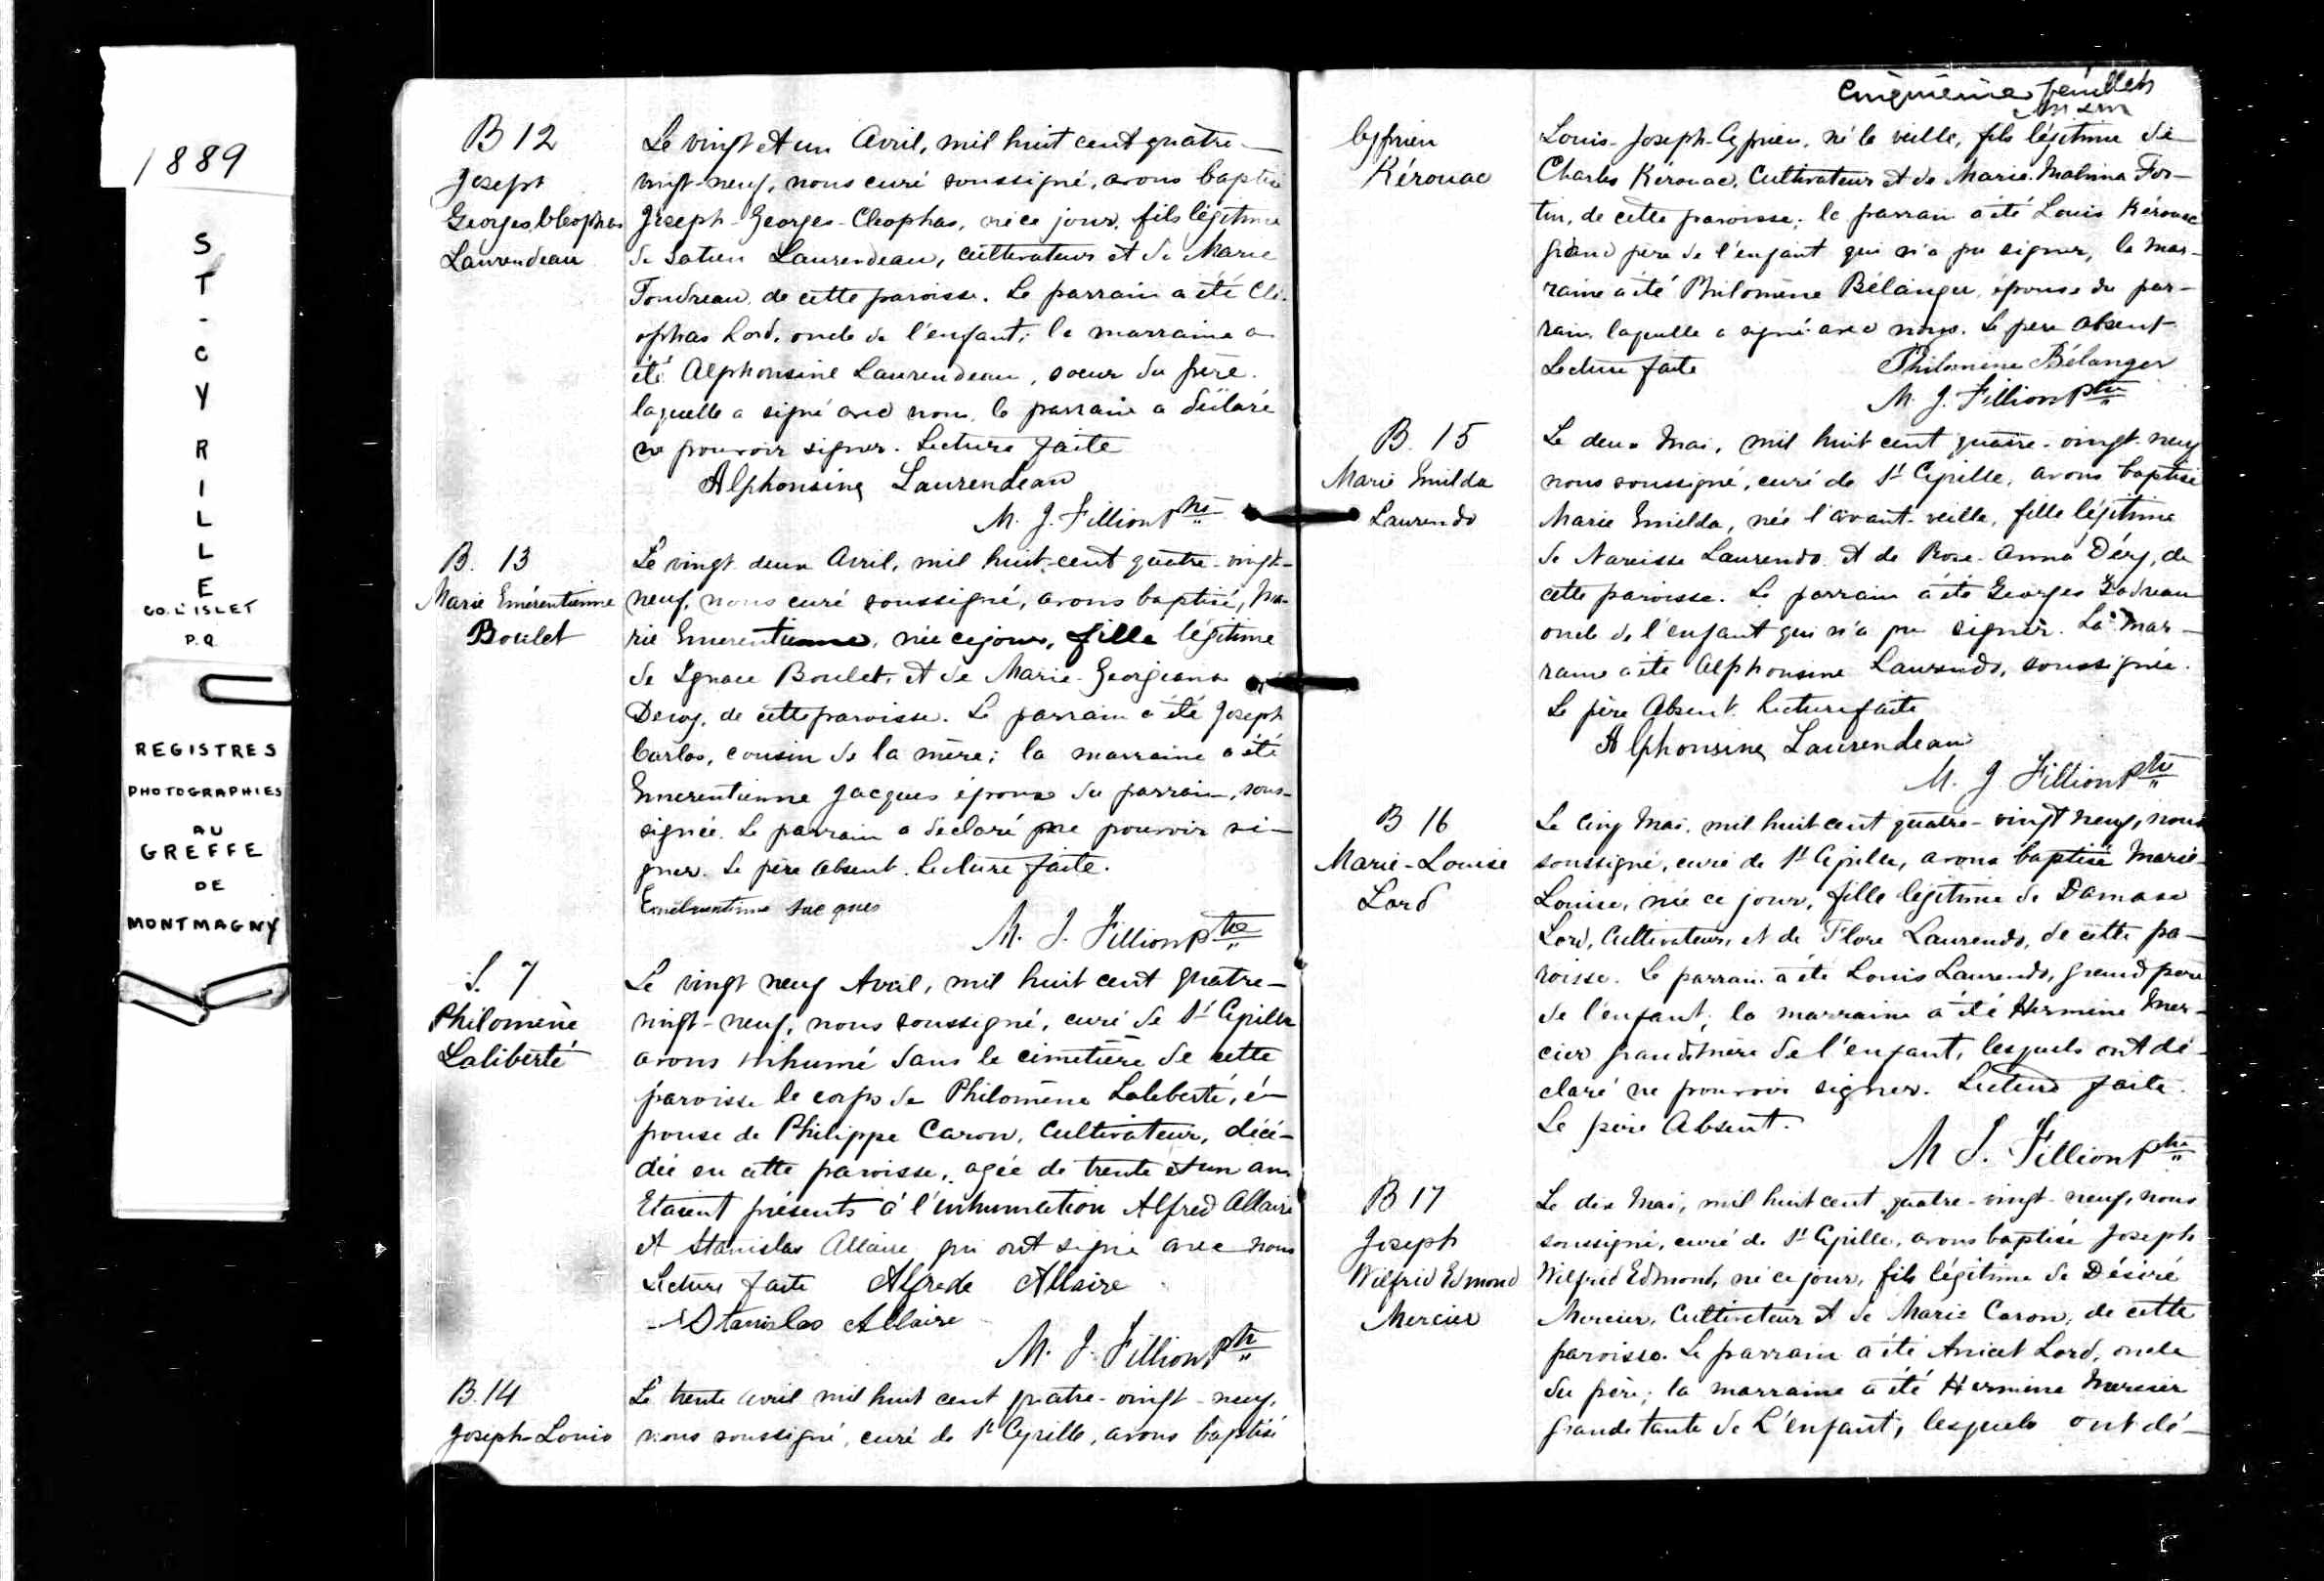 1889
ST-CYRILLE
CO. L'ISLET
P.Q.
REGISTRES
PHOTOGRAPHIES
AU
GREFFE
DE
MONTMAGNY
B 12
Joseph
Georges Cleophas
Laurendeau
Le vingt et un Avril, mil huit cent quatre-
vingt-neuf, nous curé soussigné, avons baptisé
Joseph-Georges-Cleophas, né ce jour, fils légitime
de Laurendeau, cultivateur et de Marie
Tondreau de cette paroisse. Le parrain a été Clé-
ophas Lord, oncle de l'enfant; la marraine a
été Alphonsine Laurendeau, soeur du père.
laquelle a signé avec nous, le parrain a déclaré
ne pouvoir signer. Lecture faite
Alphonsine Laurendeau
M. J. Fillion Ptre
B. 13
Marie Emérentienne
Boulet
Le vingt deux Avril, mil huit-cent quatre-vingt-
neuf, nous curé soussigné, avons baptisé, Ma-
rie Emerentienne, née ce jour, fille légitime
de Ignace Boulet, et de Marie-Georgeanna
de cette paroisse. Le parrain a été Joseph
Carlos, cousin de la mère; la marraine a été
Emerentienne Jacques épouse du parrain, sous-
signée. Le parrain a déclaré ne pouvoir si-
gner. Le père absent. Lecture faite.
Jacques
M. J. Fillion Ptre
S. 7
Philomène
Laliberté
Le vingt neuf Avril, mil huit cent quatre-
vingt-neuf, nous soussigné, curé de St Cyrille
avons inhumé dans le cimetière de cette
paroisse le corps de Philomène Laliberté, é-
pouse de Philippe Caron, Cultivateur, décé-
dée en cette paroisse, agée de trente et un ans
Etaient présents à l'inhumation Alfred Allaire
et Stanislas Allaire qui ont signé avec nous
Lecture faite Alfrede Allaire
Stanislas Allaire
M. J. Fillion Ptr
B. 14
Joseph-Louis
Le trente avril mil huit cent quatre-vingt-neuf,
nous soussigné, curé de St Cyrille, avons baptisé
Cinquième feuillet
Cyprien
Kérouac
Louis-Joseph-Cyprien, né la veille, fils légitime de
Charles Kérouac, Cultivateur et de Marie-Malvina For-
tin, de cette paroisse; le parrain a été Louis Kérouac
grand père de l'enfant qui n'a pu signer, la mar-
raine a été Philomène Bélanger, épouse du par-
rain, laquelle a signé avec nous. Le père absent
Lecture faite Philomène Bélanger
M. J. Fillion Ptre
B. 15
Marie Emilda
Laurendo
Le deux Mai, mil huit cent quatre-vingt-neuf
nous soussigné, curé de St Cyrille, avons baptisé
Marie Emilda, née l'avant-veille, fille légitime
de Narcisse Laurendo et de Rose-Anna Déry, de
cette paroisse. Le parrain a été Georges
oncle de l'enfant qui n'a pu signer. La mar-
raine a été Alphonsine Laurendo, soussignée.
Le père Absent. Lecture faite
Alphonsine Laurendeau
M. J Fillion Ptre
B 16
Marie-Louise
Lord
Le Cinq Mai, mil huit cent quatre-vingt neuf, nous
soussigné, curé de St Cyrille, avons baptisé Marie-
Louise, née ce jour, fille légitime de Damase
Lord, Cultivateur, et de Flore Laurendo, de cette pa-
roisse. Le parrain a été Louis Laurendo, grand père
de l'enfant; la marraine a été Hermine Mer-
cier grandmère de l'enfant, lesquels ont dé-
claré ne pouvoir signer. Lecture faite.
Le père Absent.
M J. Fillion Ptre
B 17
Joseph
Wilfrid Edmond
Mercier
Le dix Mai, mil huit cent quatre-vingt-neuf, nous
soussigné, curé de St Cyrille, avons baptisé Joseph
Wilfrid Edmond, né ce jour, fils légitime de Désiré
Mercier, Cultivateur et de Marie Caron, de cette
paroisse. Le parrain a été Anicet Lord, oncle
du père; la marraine a été Hermine Mercier
grande tante de L'enfant, lesquels ont dé-